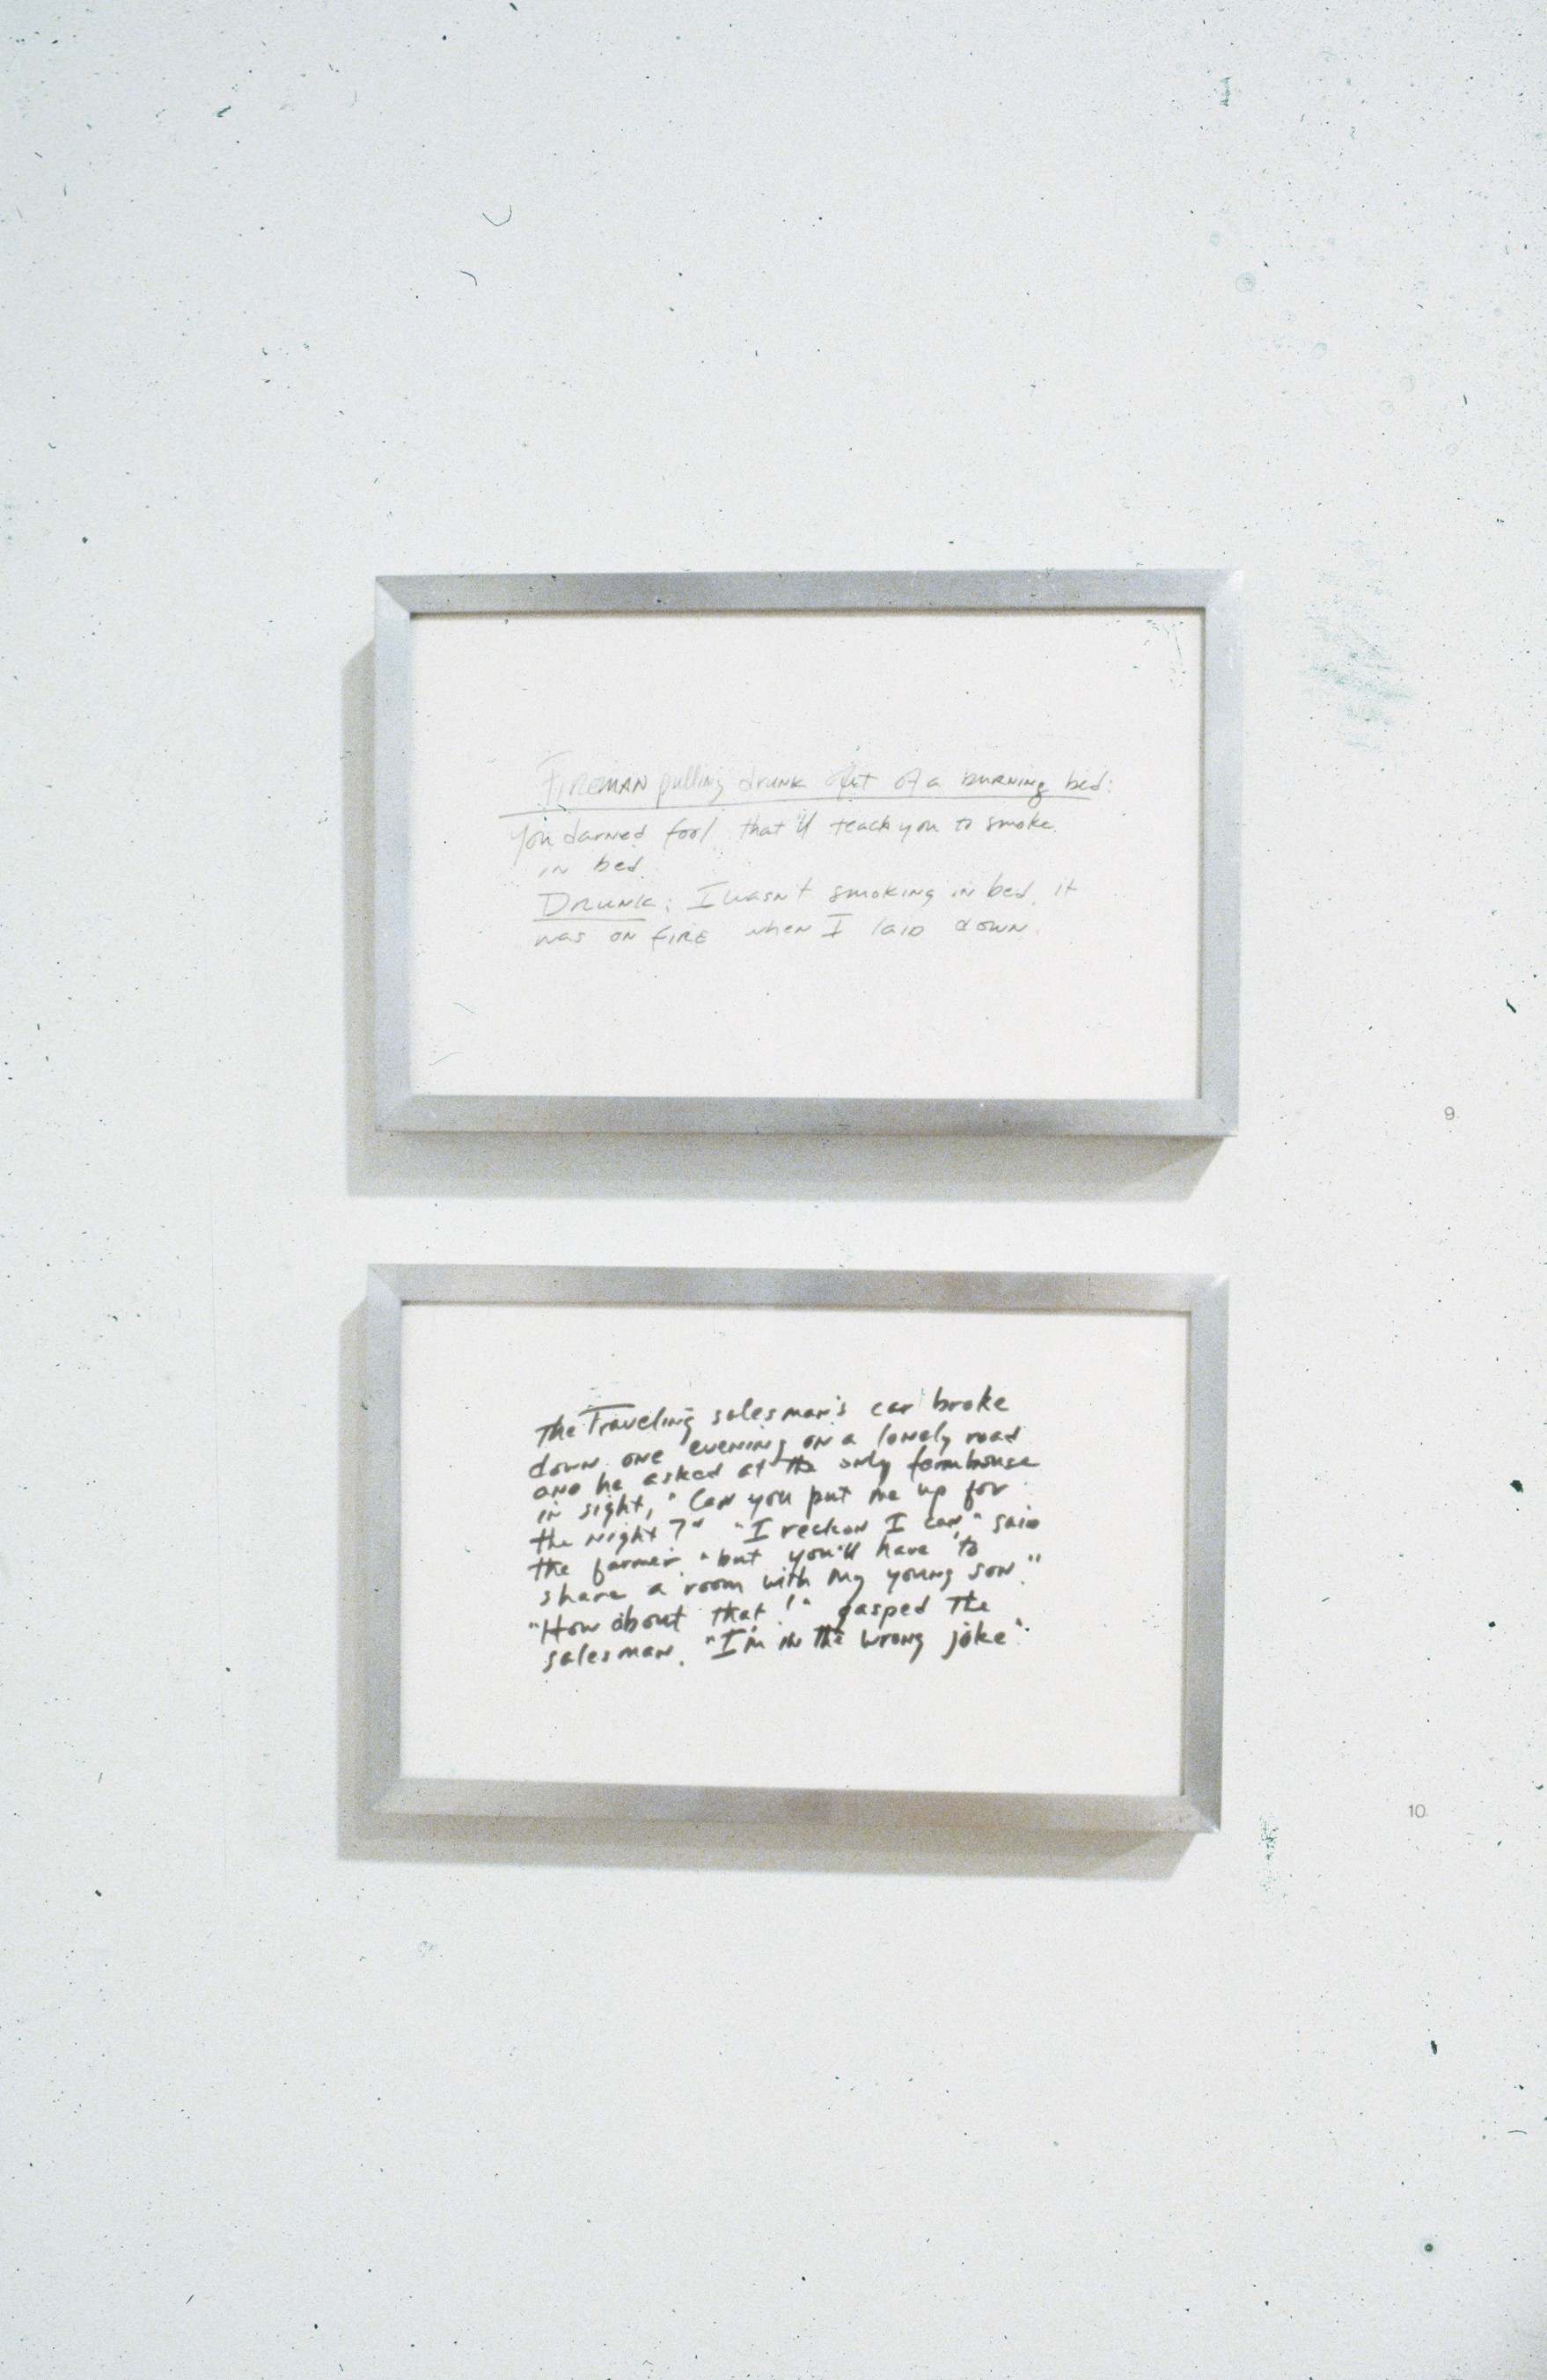 Fireman pulling drunk out of a burning bed:
You darned fool, that'll teach you to smoke
in bed.
Drunk: I wasn't smoking in bed, it
was on fire when I laid down.
9.
The Traveling salesman's car broke
down one evening on a lonely road
and he asked at the only farmhouse
in sight, "Can you put me up for
the night?" "I reckon I can," said
the farmer, "but you'll have to
share a room with my young son."
"How about that!" gasped the
salesman. "I'm in the wrong joke".
10.